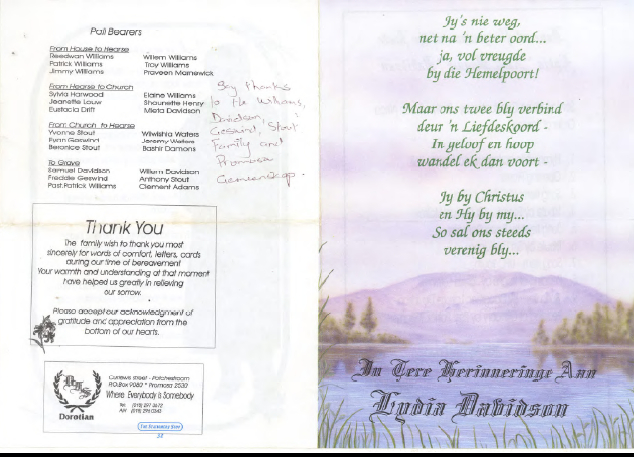 Pall Bearers
From House to Hearse
Reedwan Williams Willem Williams
Patrick Williams Troy Williams
Jimmy Williams Praveen Marnewick
From Hearse to Church
Sylvia Harwood Elaine Williams
Jeanette Louw Shaunette Henry
Eustacia Drift Mieta Davidson
From Church to Hearse
Yvonne Stout Wilwishia Waters
Fynn Gaswind Jeremy Waters
Beronice Stout Bashir Damons
To Grave
Samuel Davidson Willem Davidson
Freddie Geswind Anthony Stout
Past.Patrick Williams Clement Adams
Say thanks
to the Williams,
Davidson,
Geswind, Stout
Family and
Promosa
Gemeenskap.
Thank You
The family wish to thank you most
sincerely for words of comfort, letters, cards
during our time of bereavement
Your warmth and understanding at that moment
have helped us greatly in relieving
our sorrow.
Please accept our acknowledgment of
gratitude and appreciation from the
bottom of our hearts.
Dorotian
Curlews street - Potchefstroom
P.O.Box 9082 * Promosa 2530
Where Everybody is Somebody
Tel: (018) 297 3672
38
Jy's nie weg,
net na 'n beter oord...
ja, vol vreugde
by die Hemelpoort!
Maar ons twee bly verbind
deur 'n Liefdeskoord -
In geloof en hoop
wandel ek dan voort -
Jy by Christus
en Hy by my...
So sal ons steeds
verenig bly...
In Tere Herinneringe Aan
Lydia Davidson